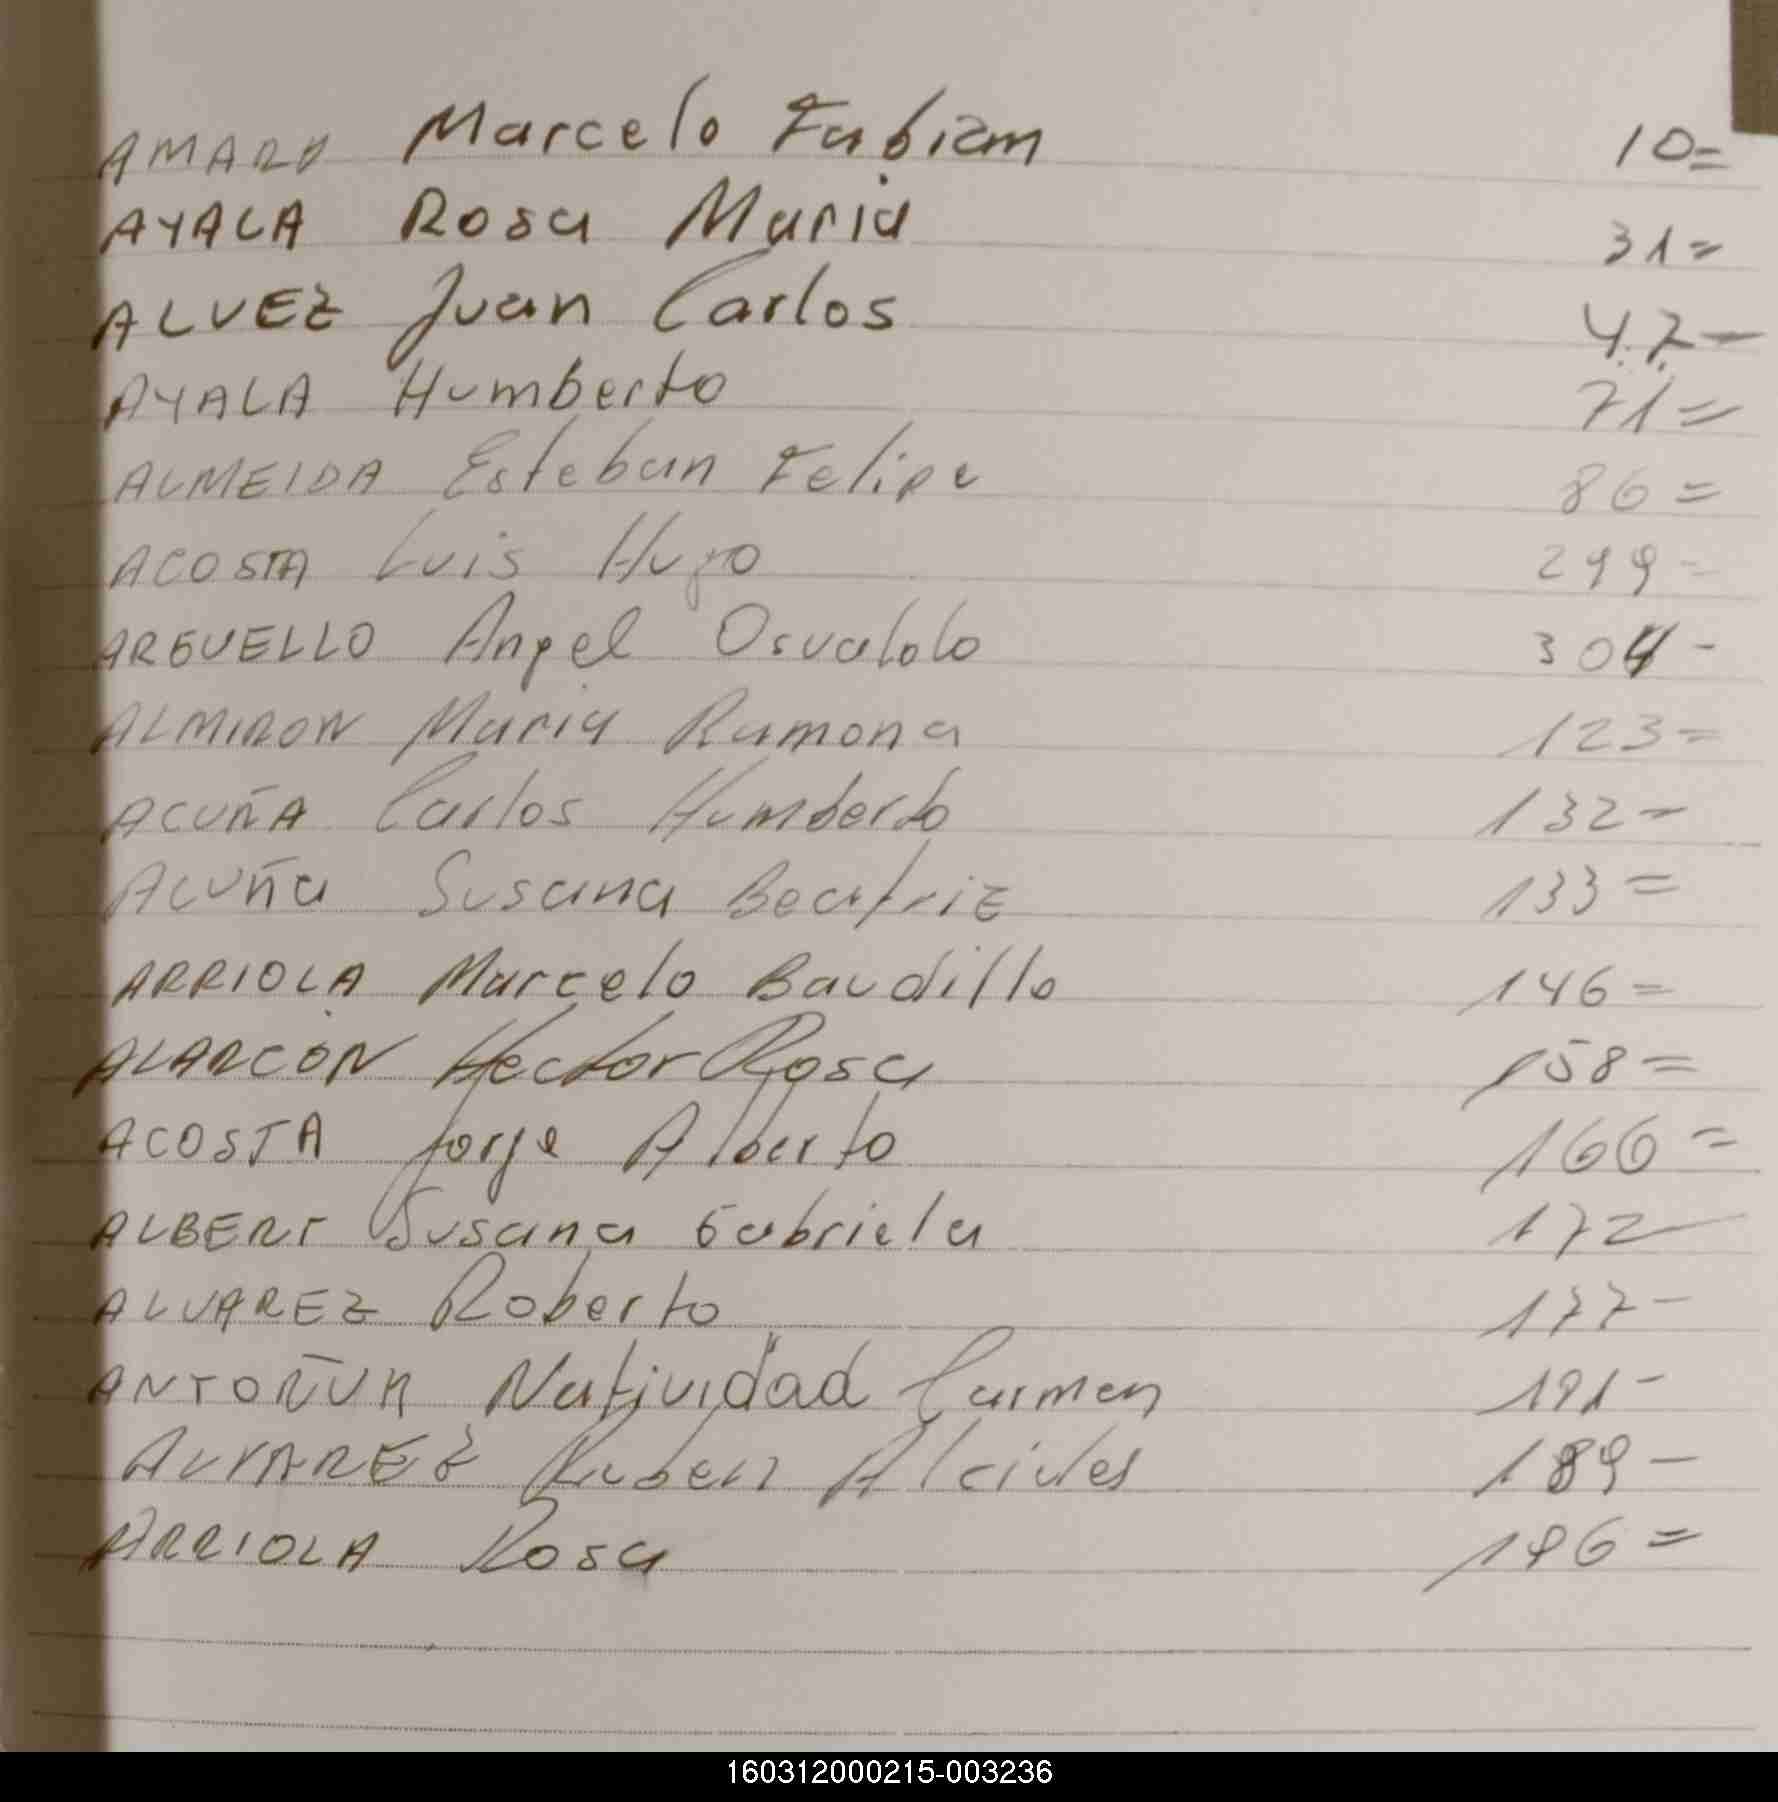 AMARO Marcelo Fabian 10=
AYALA Rosa Maria 31=
ALVEZ Juan Carlos 47-
AYALA Humberto 71=
ALMEIDA Esteban Felipe 86=
ACOSTA Luis Hugo 299=
ARGUELLO Angel Osvaldo 304-
ALMIRON Maria Ramona 123=
ACUÑA Carlos Humberto 132-
Acuña Susana Beatriz 133=
ARRIOLA Marcelo Baudillo 146=
ALARCON Hector Rosa 158=
ACOSTA Jorge Alberto 166=
ALBERT Susana Gabriela 172-
ALVAREZ Roberto 177-
Natividad Carmen
ALVAREZ Ruben Alcides 189-
ARRIOLA Rosa 196=
160312000215-003236